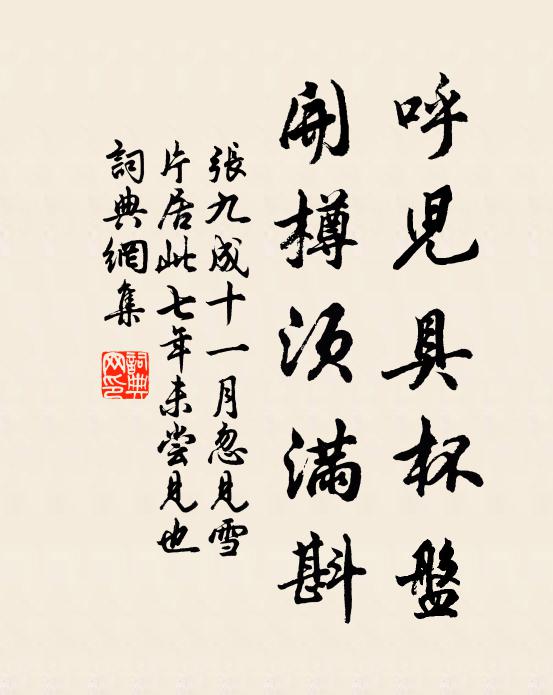 呼児具杯盤
開樽須满斟
張九成十一月忽見雪
片居此七年未尝見也
詞典網集
詞典
网印